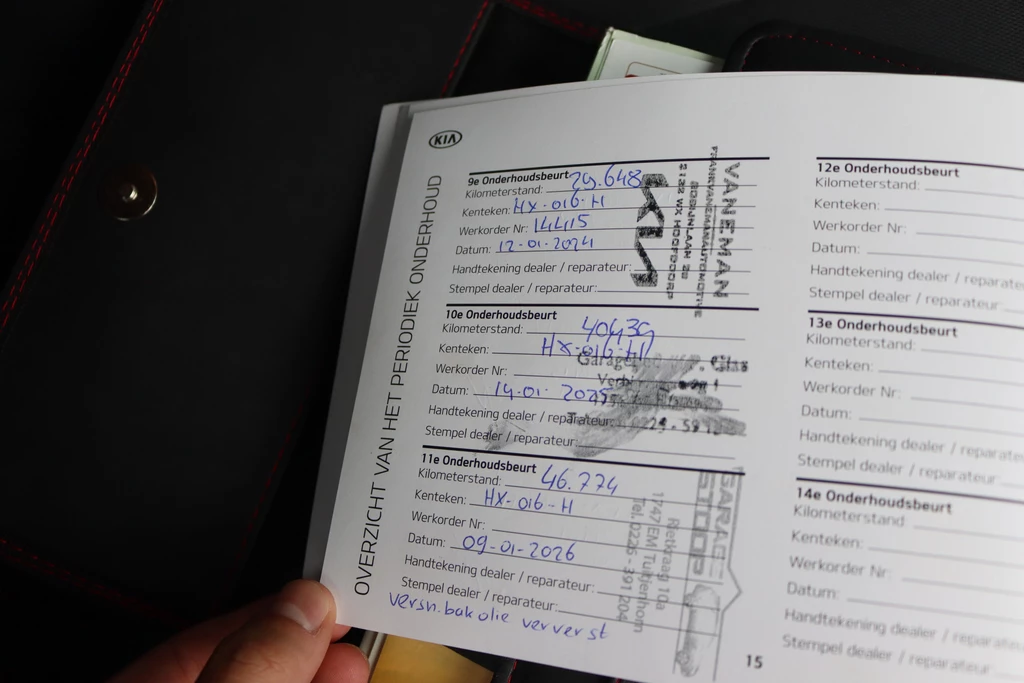 KIA
OVERZICHT VAN HET PERIODIEK ONDERHOUD
9e Onderhoudsbeurt
Kilometerstand: 29.648
Kenteken: HX-016-H
Werkorder Nr: 14415
Datum: 12-01-2024
Handtekening dealer / reparateur:
Stempel dealer / reparateur:
KIA
VANEMAN
FRANKVANEMANAUTOMOTIVE
ROBIJNLAAN 22
2132 WX HOOFDDORP
10e Onderhoudsbeurt
Kilometerstand: 40439
Kenteken: HX-016-H
Werkorder Nr:
Datum: 14-01-2025
Handtekening dealer / reparateur:
Stempel dealer / reparateur:
Garage
11e Onderhoudsbeurt
Kilometerstand: 46.774
Kenteken: HX-016-H
Werkorder Nr:
Datum: 09-01-2026
Handtekening dealer / reparateur:
Stempel dealer / reparateur:
versn.bak olie ververst
GARAGE
STOOP
Rietkraag 10a
1747 EM Tuitjenhorn
Tel. 0226 - 391 204
12e Onderhoudsbeurt
Kilometerstand:
Kenteken:
Werkorder Nr:
Datum:
Handtekening dealer / reparateur
Stempel dealer / reparateur
13e Onderhoudsbeurt
Kilometerstand:
Kenteken:
Werkorder Nr:
Datum:
Handtekening dealer / reparateur
Stempel dealer / reparateur
14e Onderhoudsbeurt
Kilometerstand
Kenteken:
Werkorder Nr:
Datum:
Handtekening dealer / reparateur
Stempel dealer / reparateur
15